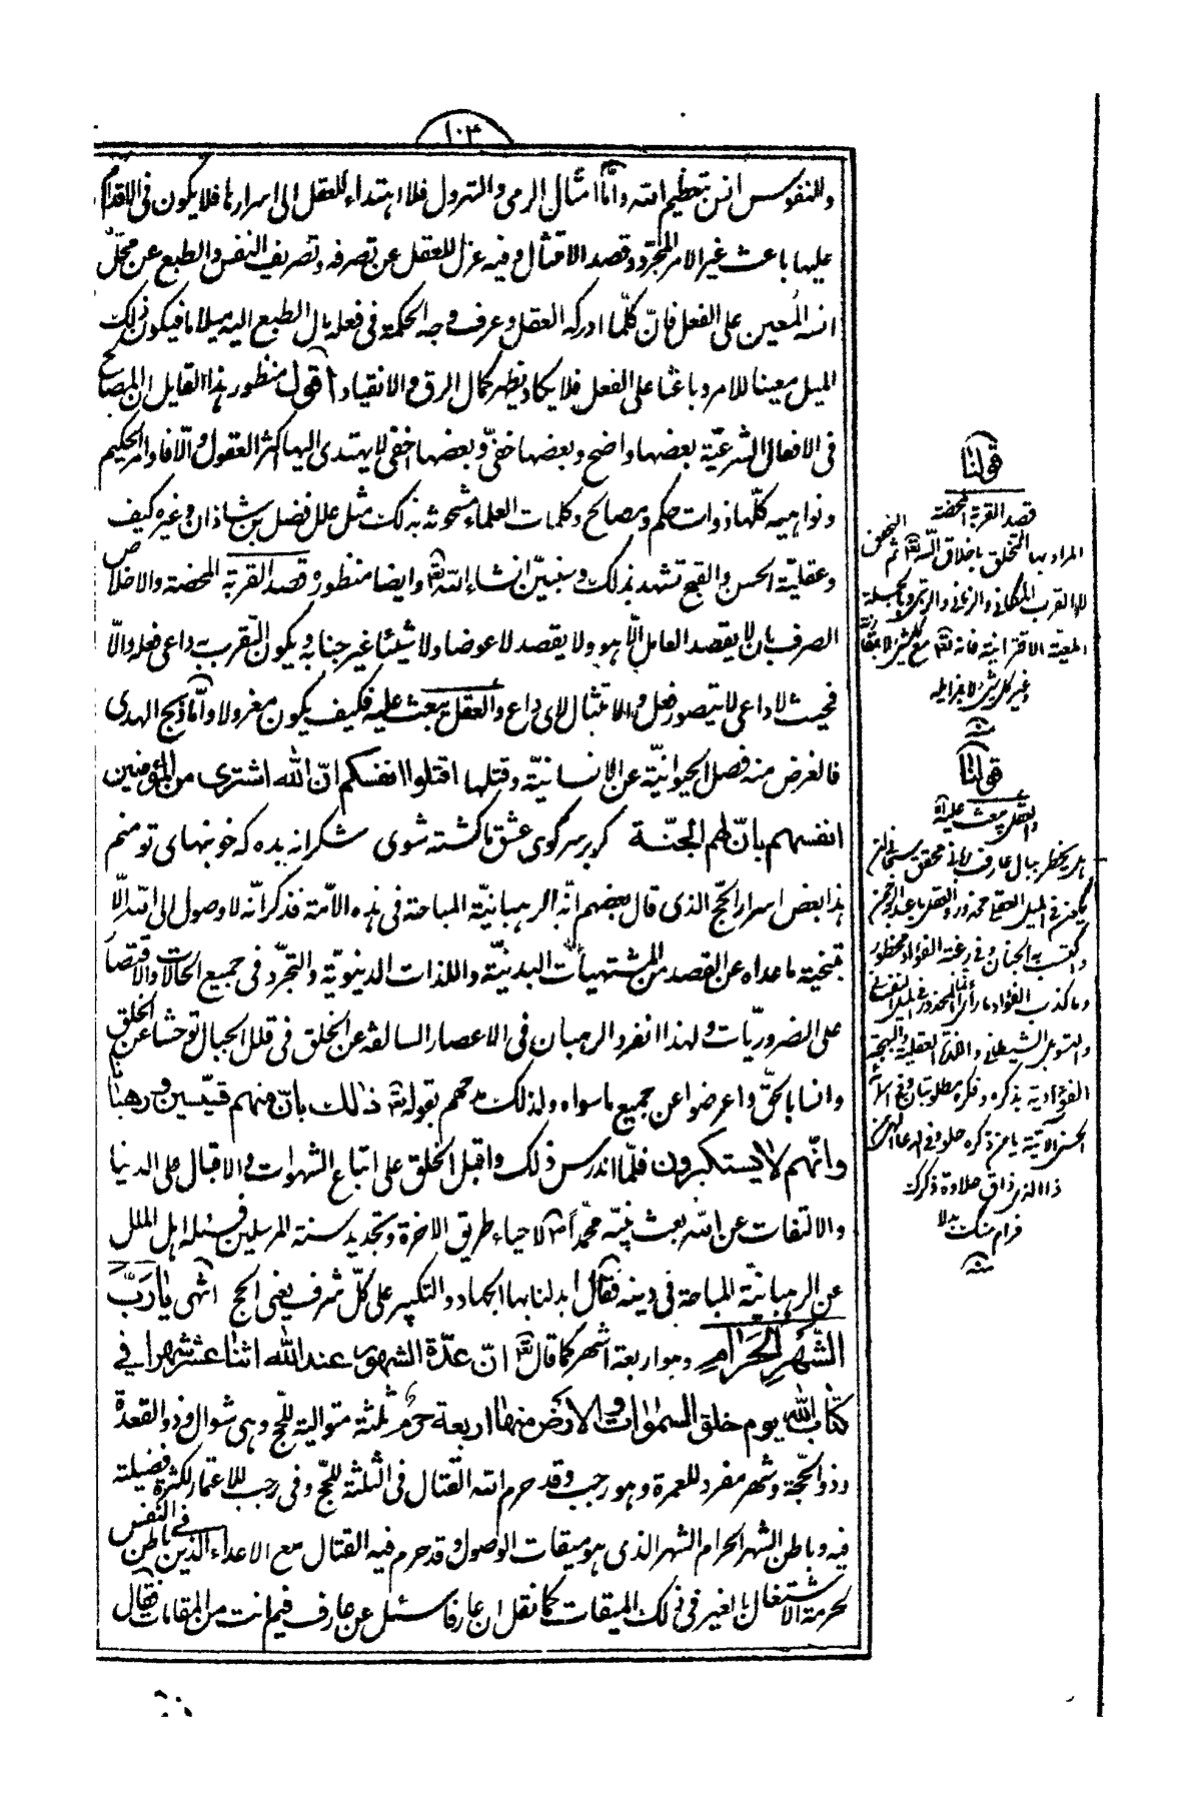 ١٠٣
وللنفوس انس بتعظيم الله واما امثال الرمى والهرولة فلا اهتداء للعقل الى اسرارها فلا يكون فى الاقدام
عليها باعث غير الامر المجرد وقصد الامتثال وفيه عزل للعقل عن تصرفه وتصريف النفس والطبع عن محل
انسه المعين على الفعل فان كلما ادركه العقل وعرف وجه الحكمة فى فعله مال الطبع اليه ميلا ما فيكون ذلك
الميل معينا للامر وباعثا على الفعل فلا يكاد يظهر كمال الرق والانقياد اقول منظور هذا القايل ان المصالح
فى الافعال الشرعية بعضها واضح وبعضها خفى وبعضها اخفى لا يهتدى اليها اكثر العقول والا فاوامر الحكيم
ونواهيه كلها ذوات حكم ومصالح وكلمات العلماء مشحونة بذلك مثل علل فضل بن شاذان وغيره كيف
وعقلية الحسن والقبح تشهد بذلك وسنبين انشاء الله تعالى وايضا منظوره قصد القربة المحضة والاخلاص
الصرف بان لا يقصد العامل الا هو ولا يقصد لا عوضا ولا شيئا غير جنابه ويكون التقرب به داعى فعله والا
فحيث لا داعى لا يتصور فعل والامتثال لاى داع والعقل يبعث عليه فكيف يكون معزولا واما ذبح الهدى
فالغرض منه فصل الحيوانية عن الانسانية وقتلها اقتلوا انفسكم ان الله اشترى من المؤمنين
انفسهم بان لهم الجنة گر بر سر كوى عشق ما كشته شوى شكرانه بده كه خونبهاى تو منم
هذا بعض اسرار الحج الذى قال بعضهم انه الرهبانية المباحة فى هذه الامة فذكر انه لا وصول الى الله الا
بتنحية ما عداه عن القصد من المشتهيات البدنية واللذات الدنيوية والتجرد فى جميع الحالات والاقتصار
على الضروريات ولهذا انفرد الرهبان فى الاعصار السالفة عن الخلق فى قلل الجبال توحشا عن الخلق
وانسا بالحق واعرضوا عن جميع ما سواه ولذلك مدحهم بقوله تعالى ذلك بان منهم قسيسين ورهبانا
وانهم لا يستكبرون فلما اندرس ذلك واقبل الخلق على اتباع الشهوات والاقبال على الدنيا
والالتفات عن الله بعث نبيه محمدا ص لاحياء طريق الاخرة وتجديد سنة المرسلين فسئله اهل الملل
عن الرهبانية المباحة فى دينه فقال ابدلنا بها الجهاد والتكبير على كل شرف يعنى الحج انتهى يا رب
الشهر الحرام وهو اربعة اشهر كما قال تعالى ان عدة الشهور عند الله اثنا عشر شهرا فى
كتاب الله يوم خلق السموات والارض منها اربعة حرم ثلثة متوالية للحج وهى شوال وذو القعدة
وذو الحجة وشهر مفرد للعمرة وهو رجب وقد حرم الله القتال فى الثلثة للحج وفى رجب للاعتمار لكثرة فضيلته
فيه وباطن الشهر الحرام الشهر الذى هو ميقات الوصول وقد حرم فيه القتال مع الاعداء الذين فى باطن النفس
لحرمة الاشتغال بالغير فى ذلك الميقات كما نقل ان عارفا سئل عن عارف فيم انت من المقامات فقال
قولنا
قصد القربة المحضة
المراد بها التخلق باخلاق الله تعالى ثم
للقرب المكانى والزمانى والرتبى
المعية الاقترانية فانه تعالى مع كل شئ لا بمقارنة
وغير كل شئ لا بمزايلة
منه
قولنا
والعقل يبعث عليه
هل يخطر ببال عارف
واكتسب به الجنان وفى رغبة الفؤاد محظور
وما كذب الفؤاد ما راى
الفؤادية بذكره وفكره مطلوبتان
يا من ذكره حلو وفى الدعاء
ذا الذى ذاق حلاوة ذكرك
فرام منك بدلا
منه